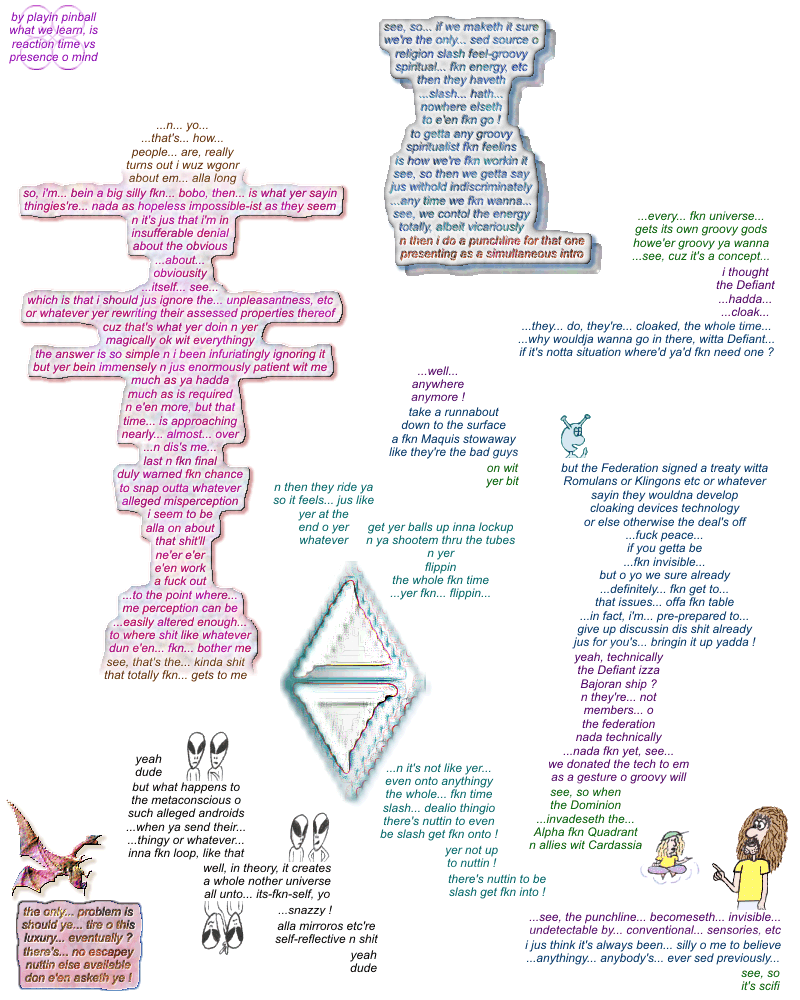 by playin pinball
what we learn, is
reaction time vs
presence o mind
see, so... if we maketh it sure
we're the only... sed source o
religion slash feel-groovy
spiritual... fkn energy, etc
then they haveth
...slash... hath...
nowhere elseth
to e'en fkn go !
to getta any groovy
spiritualist fkn feelins
is how we're fkn workin it
see, so then we getta say
jus withold indiscriminately
...any time we fkn wanna...
see, we contol the energy
totally, albeit vicariously
n then i do a punchline for that one
presenting as a simultaneous intro
...n... yo...
...that's... how...
people... are, really
turns out i wuz wgonr
about em... alla long
so, i'm... bein a big silly fkn... bobo, then... is what yer sayin
thingies're... nada as hopeless impossible-ist as they seem
n it's jus that i'm in
insufferable denial
about the obvious
...about...
obviousity
...itself... see...
which is that i should jus ignore the... unpleasantness, etc
or whatever yer rewriting their assessed properties thereof
cuz that's what yer doin n yer
magically ok wit everythingy
the answer is so simple n i been infuriatingly ignoring it
but yer bein immensely n jus enormously patient wit me
much as ya hadda
much as is required
n e'en more, but that
time... is approaching
nearly... almost... over
...n dis's me...
last n fkn final
duly warned fkn chance
to snap outta whatever
alleged misperception
i seem to be
alla on about
that shit'll
ne'er e'er
e'en work
a fuck out
...to the point where...
me perception can be
...easily altered enough...
to where shit like whatever
dun e'en... fkn... bother me
see, that's the... kinda shit
that totally fkn... gets to me
...every... fkn universe...
gets its own groovy gods
howe'er groovy ya wanna
...see, cuz it's a concept...
i thought
the Defiant
...hadda...
...cloak...
...they... do, they're... cloaked, the whole time...
...why wouldja wanna go in there, witta Defiant...
if it's notta situation where'd ya'd fkn need one ?
...well...
anywhere
anymore !
take a runnabout
down to the surface
a fkn Maquis stowaway
like they're the bad guys
on wit
yer bit
n then they ride ya
so it feels... jus like
yer at the
end o yer
whatever
get yer balls up inna lockup
n ya shootem thru the tubes
n yer
flippin
the whole fkn time
...yer fkn... flippin...
but the Federation signed a treaty witta
Romulans or Klingons etc or whatever
sayin they wouldna develop
cloaking devices technology
or else otherwise the deal's off
...fuck peace...
if you getta be
...fkn invisible...
but o yo we sure already
...definitely... fkn get to...
that issues... offa fkn table
...in fact, i'm... pre-prepared to...
give up discussin dis shit already
jus for you's... bringin it up yadda !
yeah, technically
the Defiant izza
Bajoran ship ?
n they're... not
members... o
the federation
nada technically
...nada fkn yet, see...
we donated the tech to em
as a gesture o groovy will
see, so when
the Dominion
...invadeseth the...
Alpha fkn Quadrant
n allies wit Cardassia
yeah
dude
but what happens to
the metaconscious o
such alleged androids
...when ya send their...
...thingy or whatever...
inna fkn loop, like that
well, in theory, it creates
a whole nother universe
all unto... its-fkn-self, yo
...snazzy !
alla mirroros etc're
self-reflective n shit
yeah
dude
...n it's not like yer...
even onto anythingy
the whole... fkn time
slash... dealio thingio
there's nuttin to even
be slash get fkn onto !
yer not up
to nuttin !
there's nuttin to be
slash get fkn into !
the only... problem is
should ye... tire o this
luxury... eventually ?
there's... no escapey
nuttin else available
don e'en asketh ye !
...see, the punchline... becomeseth... invisible...
undetectable by... conventional... sensories, etc
i jus think it's always been... silly o me to believe
...anythingy... anybody's... ever sed previously...
see, so
it's scifi